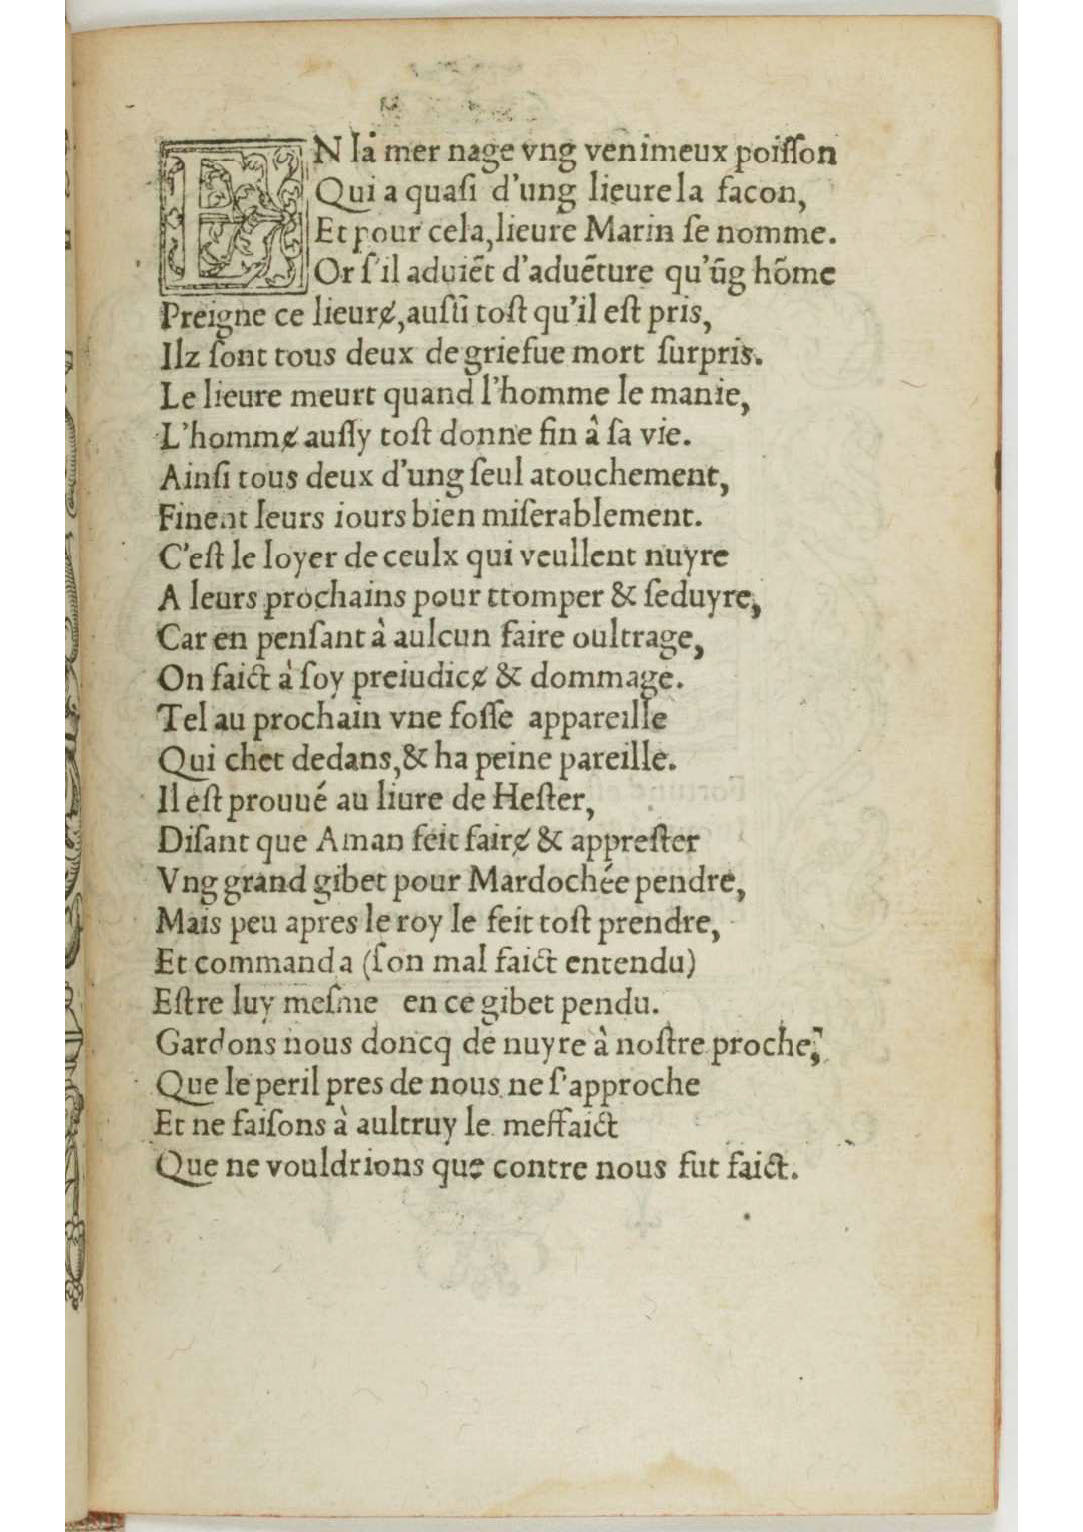 EN la mer nage vng venimeux poiſſon
Qui a quaſi d'ung lieure la facon,
Et pour cela, lieure Marin ſe nomme.
Or ſ'il aduiẽt d'aduẽture qu'ũg hõme
Preigne ce lieurɇ, auſſi toſt qu'il eſt pris,
Ilz ſont tous deux de griefue mort ſurpris.
Le lieure meurt quand l'homme le manie,
L'hommɇ auſſy toſt donne fin â ſa vie.
Ainſi tous deux d'ung ſeul atouchement,
Finent leurs iours bien miſerablement.
C'eſt le loyer de ceulx qui veullent nuyre
A leurs prochains pour ttomper & ſeduyre,
Car en penſant à aulcun faire oultrage,
On faict à ſoy preiudicɇ & dommage.
Tel au prochain vne foſſe appareille
Qui chet dedans, & ha peine pareille.
Il eſt prouué au liure de Heſter,
Diſant que Aman feit fairɇ & appreſter
Vng grand gibet pour Mardochée pendre,
Mais peu apres le roy le feit toſt prendre,
Et commanda (ſon mal faict entendu)
Eſtre luy meſme en ce gibet pendu.
Gardons nous doncq de nuyre à noſtre proche,
Que le peril pres de nous ne ſ'approche
Et ne faiſons à aultruy le meffaict
Que ne vouldrions que contre nous fut faict.